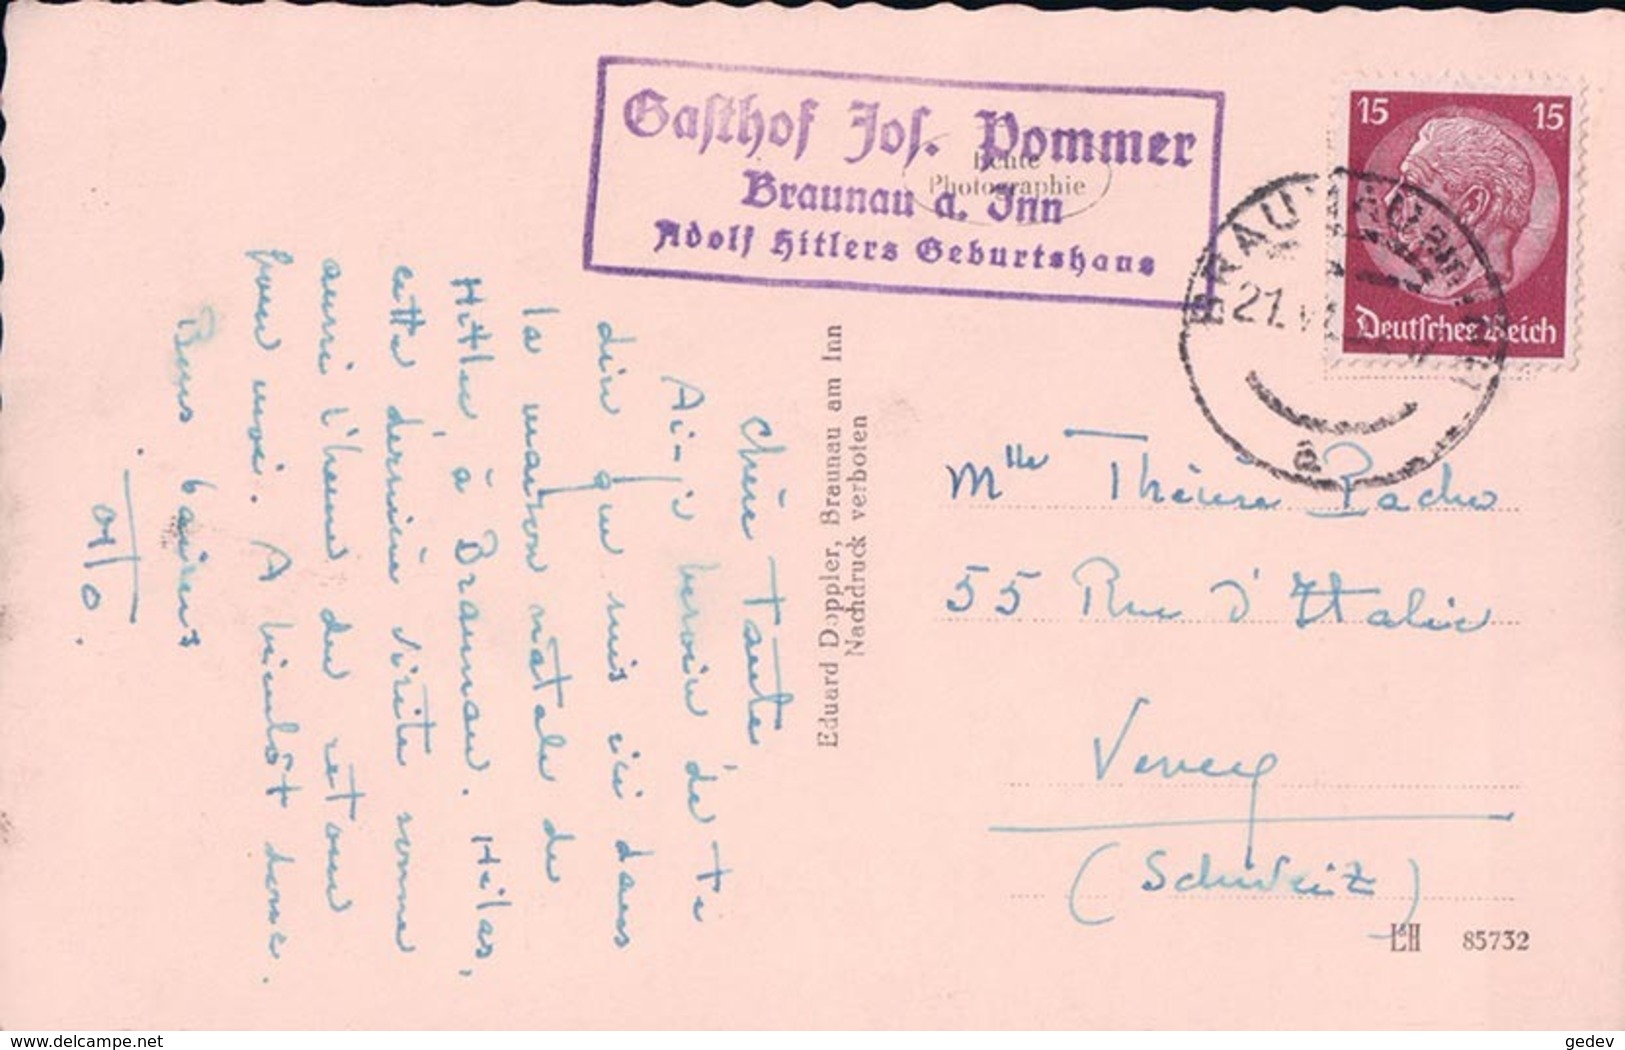 Gasthof Jos. Pommer
Braunau a. Inn
Adolf Hitlers Geburtshaus
Echte
Photographie
15 15
Deutsches Reich
BRAUNAU
21. VI
a
Chère Tante
Ai-je besoin de te
dire que suis ici dans
la maison natale de
Hitler à Braunau. Hélas,
cette dernière visite sonne
aussi l'heure du retour
pour moi. A bientôt donc.
Bons baisers
Eduard Doppler, Braunau am Inn
Nachdruck verboten
Mlle Thérèse
55 Rue d'Italie
Vevey
(Schweiz)
85732
delcampe.net
gedev